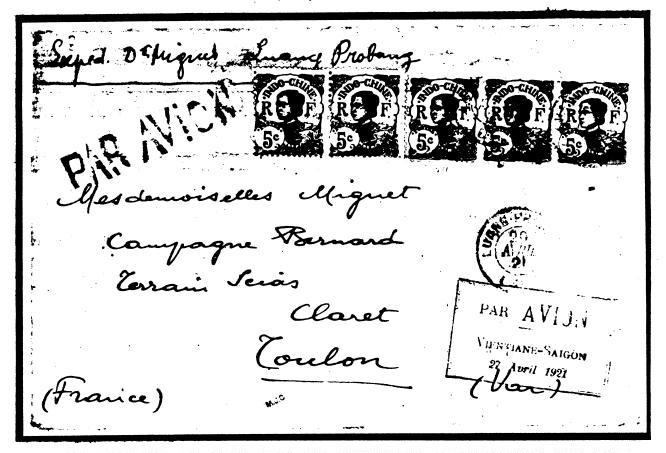 Exped. Dr Mignet Luang Prabang
INDO-CHINE INDO-CHINE INDO-CHINE INDO-CHINE INDO-CHINE
R F R F R F R F R F
5c 5c 5c 5c 5c
PAR AVION
Mesdemoiselles Mignet
Campagne Bernard
Terrain
Claret
Toulon
(Var)
(France)
LUANG-PR
AVRIL
21
PAR AVION
VIENTIANE-SAIGON
27 Avril 1921
MJC